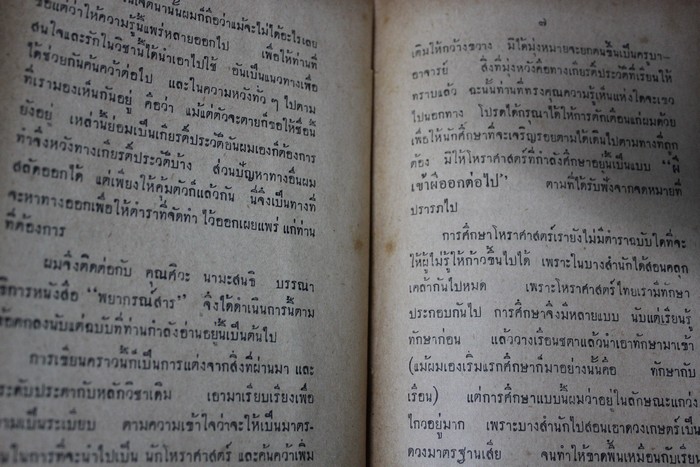 ขอแต่ว่าให้ความรู้นั้นแพร่หลายออกไป เพื่อให้ท่านที่
สนใจและรักในวิชานี้ได้นำเอาไปใช้ อันเป็นแนวทางเพื่อ
ได้ช่วยกันค้นคว้าต่อไป และในความหวังทั่ว ๆ ไปตาม
ที่เรามองเห็นกันอยู่ คือว่า แม้แต่ตัวจะตายก็ขอให้ชื่อนั้น
ยังอยู่ เหล่านี้ย่อมเป็นเกียรติประวัติอันผมเองก็ต้องการ
ทำจึงหวังทางเกียรติประวัติบ้าง ส่วนปัญหาทางอื่นผม
สลัดออกได้ แต่เพียงให้คุ้มตัวก็แล้วกัน นี่จึงเป็นทางที่
จะหาทางออกเพื่อให้ตำราที่จัดทำ ไว้ออกเผยแพร่ แก่ท่าน
ที่ต้องการ
ผมจึงติดต่อกับ คุณศิวะ นามะสนธิ บรรณา
ธิการหนังสือ "พยากรณ์สาร" จึงได้ดำเนินการขึ้นตาม
ข้อตกลงนับแต่ฉบับที่ท่านกำลังอ่านอยู่นี้เป็นต้นไป
การเขียนคราวนี้ก็เป็นการแต่งจากสิ่งที่ผ่านมา และ
ประดับประดากับหลักวิชาเดิม เอามาเรียบเรียงเพื่อ
ความเป็นระเบียบ ตามความเข้าใจว่าจะให้เป็นมาตร-
ในการที่จะนำไปเป็น นักโหราศาสตร์ และค้นคว้าเพิ่ม
๘
เติมให้กว้างขวาง มิได้มุ่งหมายจะยกตนขึ้นเป็นครูบา
อาจารย์ สิ่งที่มุ่งหวังคือทางเกียรติประวัติที่เรียนให้
ทราบแล้ว ฉะนั้นท่านที่ทรงคุณความรู้เห็นแห่งใดจะเขว
ไปนอกทาง โปรดได้กรุณาได้ให้การตักเตือนแก่ผมด้วย
เพื่อให้นักศึกษาที่จะเจริญรอยตามได้เดินไปตามทางที่ถูก
ต้อง มิให้โหราศาสตร์ที่กำลังศึกษาอยู่นี้เป็นแบบ "ผี
เข้าผีออกต่อไป" ตามที่ได้รับฟังจากจดหมายที่
ปรารภไป
การศึกษาโหราศาสตร์เรายังไม่มีตำราฉบับใดที่จะ
ให้ผู้ไม่รู้ให้ก้าวขึ้นไปได้ เพราะในบางสำนักได้สอนคลุก
เคล้ากันไปหมด เพราะโหราศาสตร์ไทยเรามีทักษา
ประกอบกันไป การศึกษาจึงมีหลายแบบ นับแต่เรียนรู้
ทักษาก่อน แล้ววางเรือนชตาแล้วนำเอาทักษามาเข้า
(แม้ผมเองเริ่มแรกศึกษาก็มาอย่างนั้นคือ ทักษากับ
เรือน) แต่การศึกษาแบบนั้นผมว่าอยู่ในลักษณะแกว่ง
ไกวอยู่มาก เพราะบางสำนักไปสอนเอาดวงเกษตรเป็น
ดวงมาตรฐานเสีย จนทำให้ขาดพื้นเหมือนกับเรียน